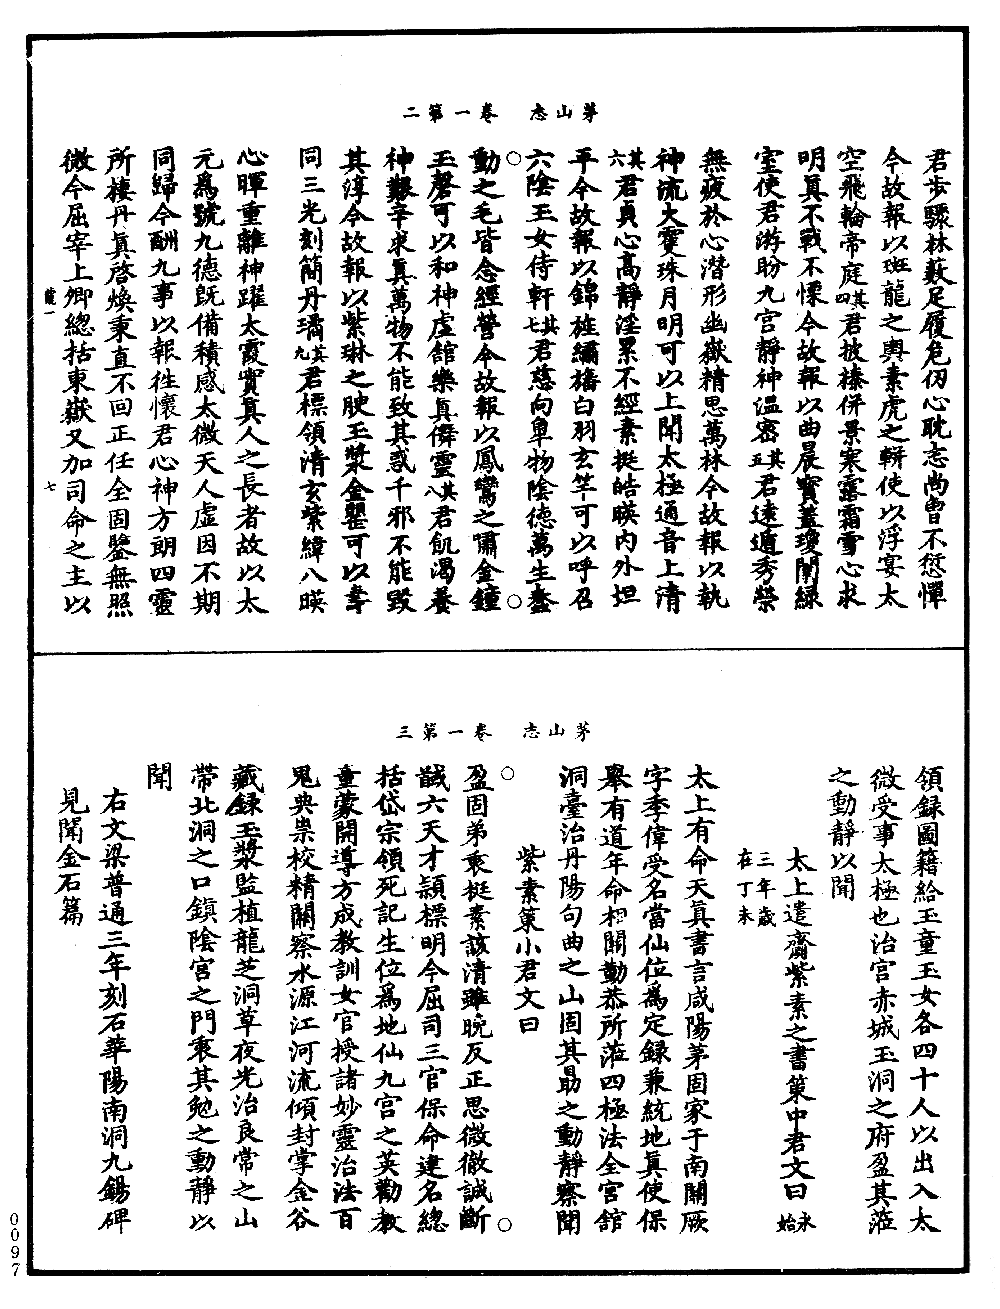 茅山志　卷一第二
君步驟林藪足履危仞心耽志尚曾不愆憚
今故報以斑龍之輿素虎之軿使以浮宴太
空飛輪帝庭其四君披榛併景寒露霜雪心求
明真不戰不慄今故報以曲晨寶蓋瓊闈綠
室使君游盼九宫静神温密其五君遠遁秀榮
無疲於心潛形幽嶽精思萬林今故報以執
神流火靈珠月明可以上聞太極通音上清
其六君貞心高靜淫累不經素挺皓暎内外坦
平今故報以錦旌繡旛白羽玄竿可以呼召
六陰玉女侍軒其七君慈向卑物陰德萬生蠢
動之毛皆念經營今故報以鳳鸞之嘯金鐘
玉磬可以和神虛館樂真儛靈其八君飢渴養
神艱辛求真萬物不能致其惑千邪不能毀
其淳今故報以紫琳之腴玉漿金罌可以壽
同三光刻簡丹瑀其九君標領清玄紫緯八暎
心暉重離神躍太霞寳真人之長者故以太
元爲號九德既備積感太微天人虛因不期
同歸今酬九事以報徃懷君心神方朗四靈
所棲丹真啓煥秉直不回正任全固鑒無照
微今屈宰上卿總括東嶽又加司命之主以
龍一　七
茅山志　卷一第三
領録圖籍給玉童玉女各四十人以出入太
微受事太極也治宫赤城玉洞之府盈其蒞
之動靜以聞
太上遣齎紫素之書策中君文曰永始
三年歲在丁未
太上有命天真書言咸陽茅固家于南關厥
字季偉受名當仙位爲定録兼統地真使保
舉有道年命相關勤恭所蒞四極法全宫舘
洞臺治丹陽句曲之山固其勗之動靜察聞
紫素策小君文曰
盈固弟衷挺素該清雖晩反正思微徹誠斷
馘六天才穎標明今屈司三官保命建名總
括岱宗領死記生位爲地仙九宫之英勸教
童蒙開導方成教訓女官授諸妙靈治法百
鬼典祟校精關察水源江河流傾封掌金谷
藏録玉漿監植龍芝洞草夜光治良常之山
帶北洞之口鎮陰宫之門衷其勉之動靜以
聞
右文梁普通三年刻石華陽南洞九錫碑
見聞金石篇
0097